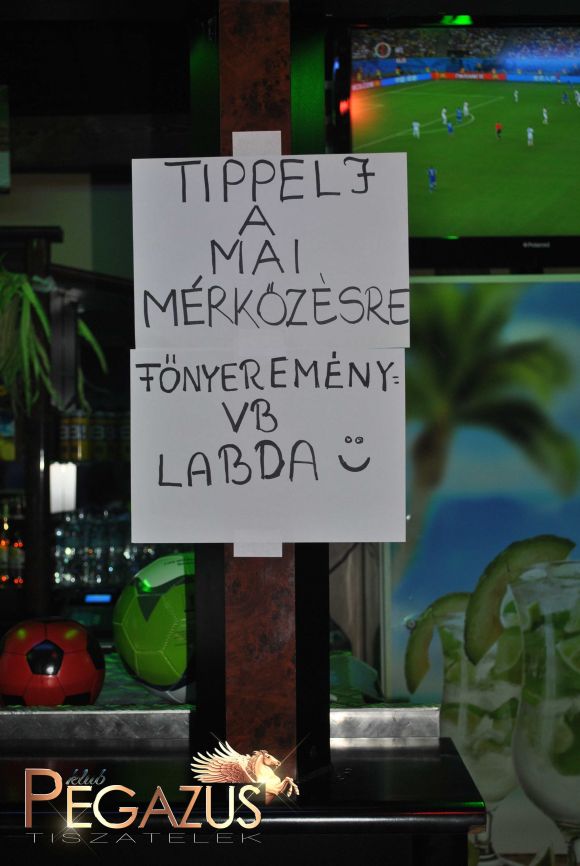 TIPPELJ
A
MAI
MÉRKŐZÉSRE
FŐNYEREMÉNY=
VB
LABDA
Polaroid
klub
PEGAZUS
TISZATELEK